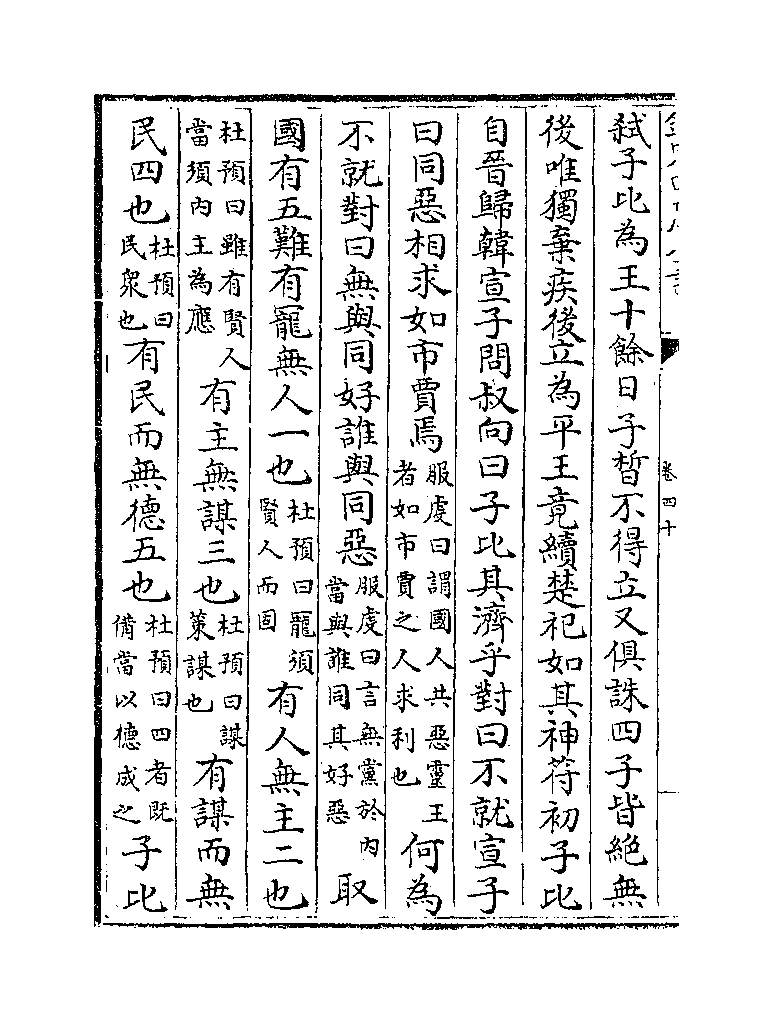 卷四十
弑子比為王十餘日子晳不得立又俱誅四子皆絕無
後唯獨棄疾後立為平王竟續楚祀如其神符初子比
自晉歸韓宣子問叔向曰子比其濟乎對曰不就宣子
曰同惡相求如市賈焉服虔曰謂國人共惡靈王者如市賈之人求利也何為
不就對曰無與同好誰與同惡服虔曰言無黨於內當與誰同其好惡取
國有五難有寵無人一也杜預曰寵須賢人而固有人無主二也
杜預曰雖有賢人當須內主為應有主無謀三也杜預曰謀策謀也有謀而無
民四也杜預曰民衆也有民而無德五也杜預曰四者既備當以德成之子比